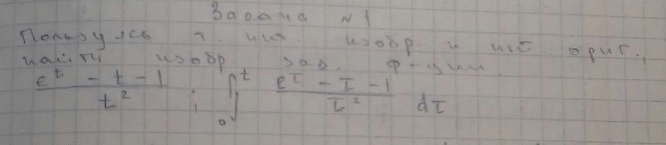 Задача №1
Пользуясь т. инт. изобр. и инт. ориг.,
найти изобр. зад. ф-ции
(e^t - t - 1)/t^2 ; ∫_0^t (e^τ - τ - 1)/τ^2 dτ